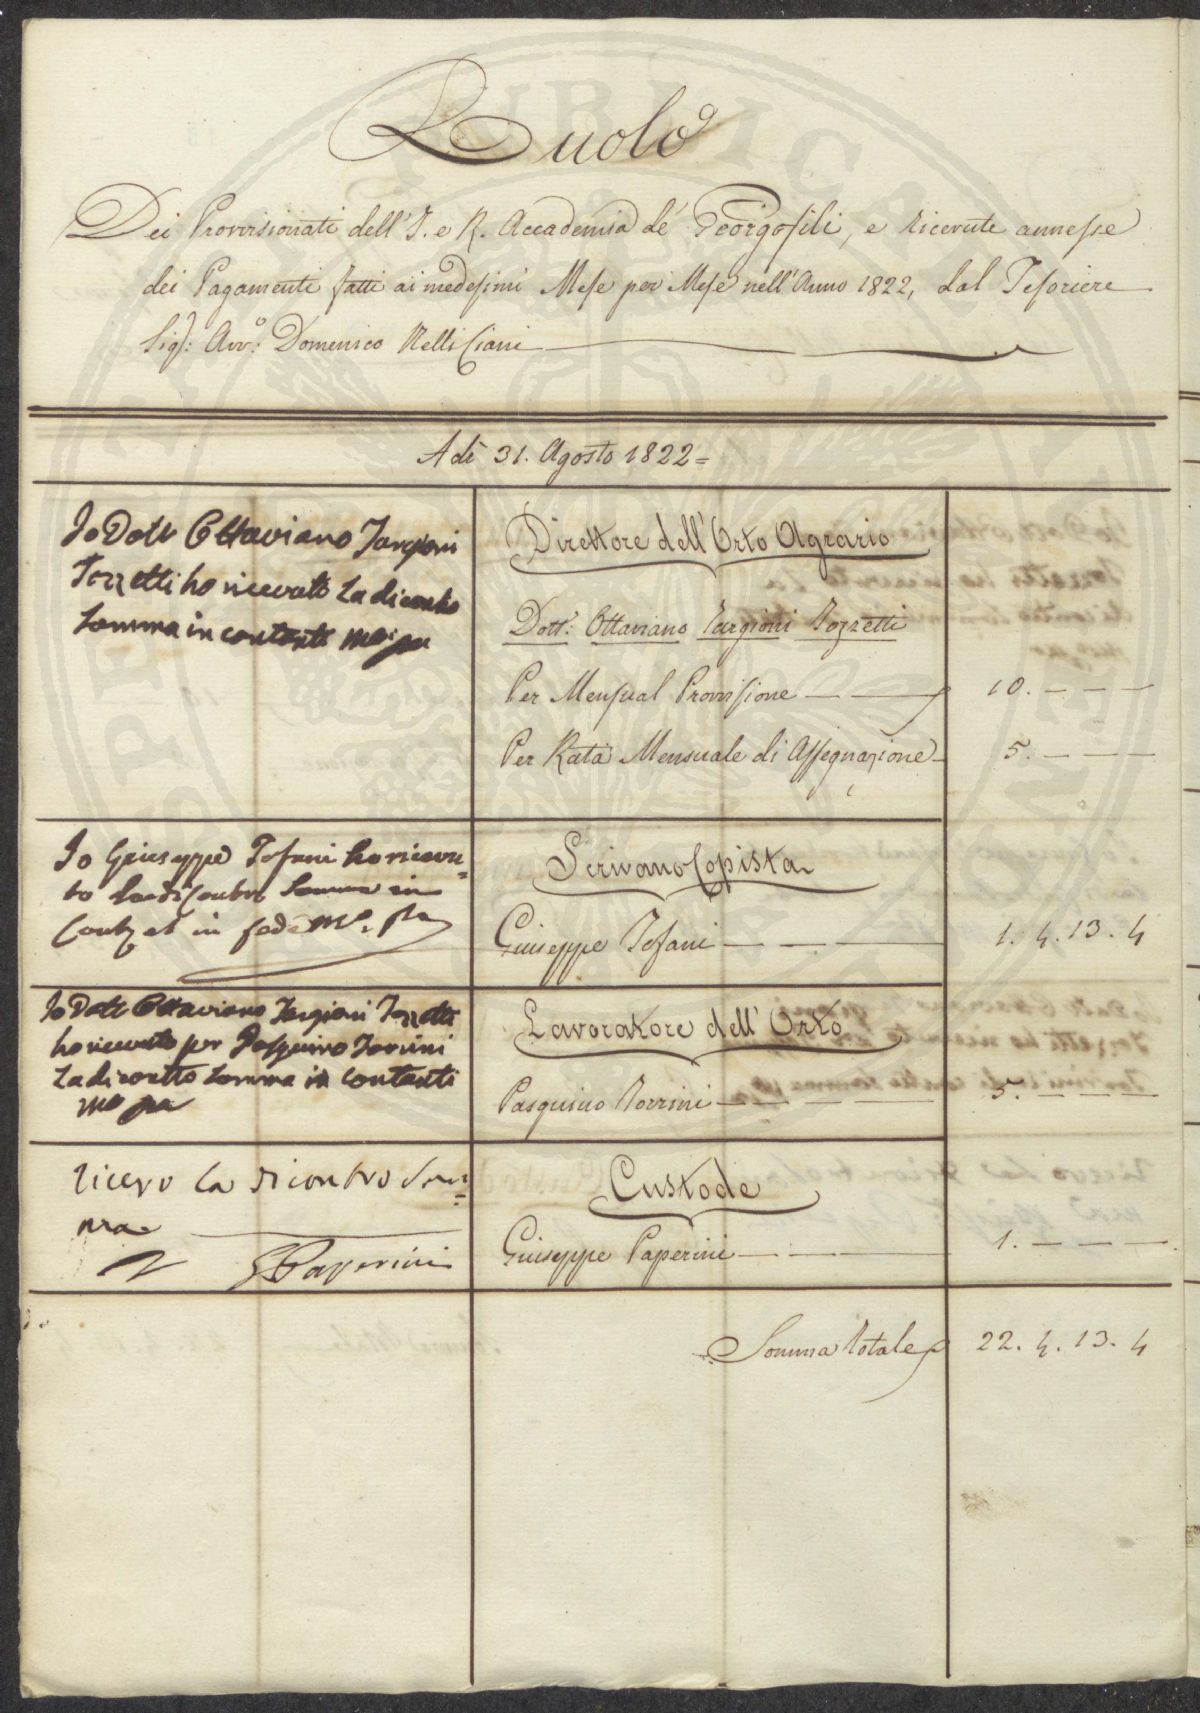 Ruolo
Dei Provvisionati dell'I. e R. Accademia de' Georgofili, e ricevute annesse
dei Pagamenti fatti ai medesimi Mese per Mese nell'Anno 1822, dal Tesoriere
Sigr: Avvo: Domenico Nelli Ciani
A dì 31. Agosto 1822=
Io Dott Ottaviano Targioni
Tozzetti ho ricevuto La dicontro
Somma in contanti mo: pa
Direttore dell'Orto Agrario
Dott: Ottaviano Targioni Tozzetti
Per Mensual Provvisione 10. — — —
Per Rata Mensuale di Assegnazione 5. — — —
Io Giuseppe Tofani ho ricevu=
to la dicontro Somma in
in fede mo. pa
Scrivano Copista
Giuseppe Tofani — — — 1. 4. 13. 4
Io Dott Ottaviano Targioni Tozzetti
ho ricevuto per Pasquino Torrini
La dicontro Somma in contanti
mo pa
Lavoratore dell'Orto
Pasquino Torrini — — — — 5. — — —
ricevo la dicontro Som=
ma
G Paperini
Custode
Giuseppe Paperini — — — 1. — — —
Somma totale 22. 4. 13. 4